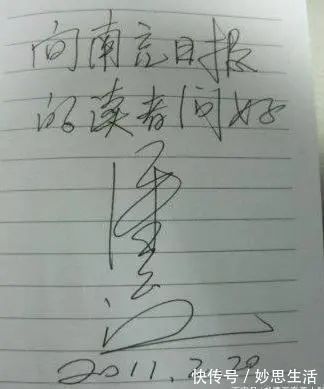 向南充日报
的读者问好
2011.7.29
快传号/妙思生活